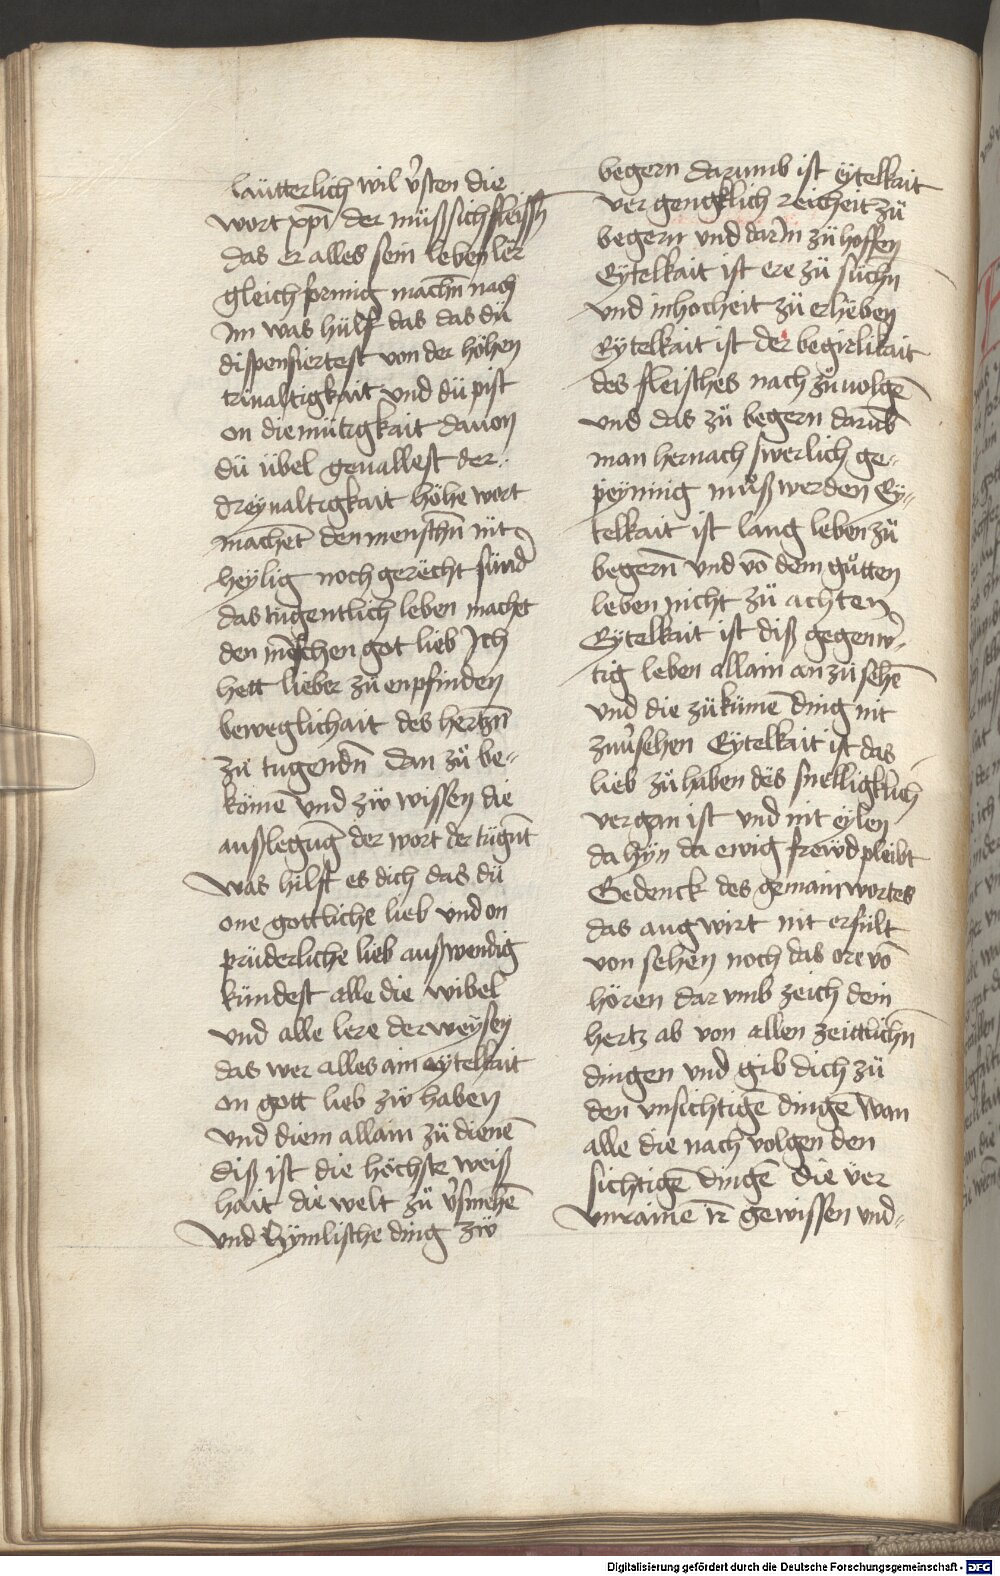 laütterlich wil v̉sten die
wort xp̄i der müß sich fleissn̄
das er alles sein leben ler
gleich formig machn̄ nach
Im was hülf das das dü
dispensiertest von der höhen
trinaltigkait vnd dü pist
on diemütigkait dauon
dü übel geuallest der
dreyualtigkait höhe wort
machet den menschn̄ nit
heylig noch gerecht sünd̾
das tugentlich leben machet
den mēschen got lieb Ich
hett lieber zü enpfinden
beweglichait des hertzn̄
zü tugendn̄ dan zů be-
kömē vnd zw wissen die
außlegūg der wort der tügnt̄
was hilft es dich das dü
one gottliche lieb vnd on
prüderliche lieb außwendig
kündest alle die wibel
vnd alle lere der weysen
das wer alles ain eytelkait
on gott lieb zw haben
vnd diem allain zü dienē
diß ist die höchste weiß
hait die welt zü v̉smehē
vnd hymlische ding zw
begern darumb ist eytelkait
ver gengklich reicheit zü
begern vnd dar̄in zü hoffen
Eytelkait ist ere zü süchn̄
vnd in hocheit zü erheben
Eytelkait ist der begirlikait
des fleisches nach zůuolgē
vnd das zů begern darūb
man hernach swerlich ge-
peynnig můß werden Ey-
telkait ist lang leben zů
begern̄ vnd vō dem gůtten
leben nicht zü achten
Eytelkait ist diß gegenw̉-
tig leben allain an zü sehē
vnd die zükümē ding nit
zuv̉sehen Eytelkait ist das
lieb zů haben des snelligklich
vergan ist vnd nit eylen
da hyn da ewig frewd pleibt
Gedenck des gemain wortes
das aug wirt nit erfült
von sehen noch das ore vō
hören dar vmb zeich dein
hertz ab von allen zeittlichn̄
dingen vnd gib dich zü
den vnsichtigē dingē wan
alle die nach volgen den
sichtigē dingē die ver
vnrainē ir gewissen vnd-
Digitalisierung gefördert durch die Deutsche Forschungsgemeinschaft - DFG